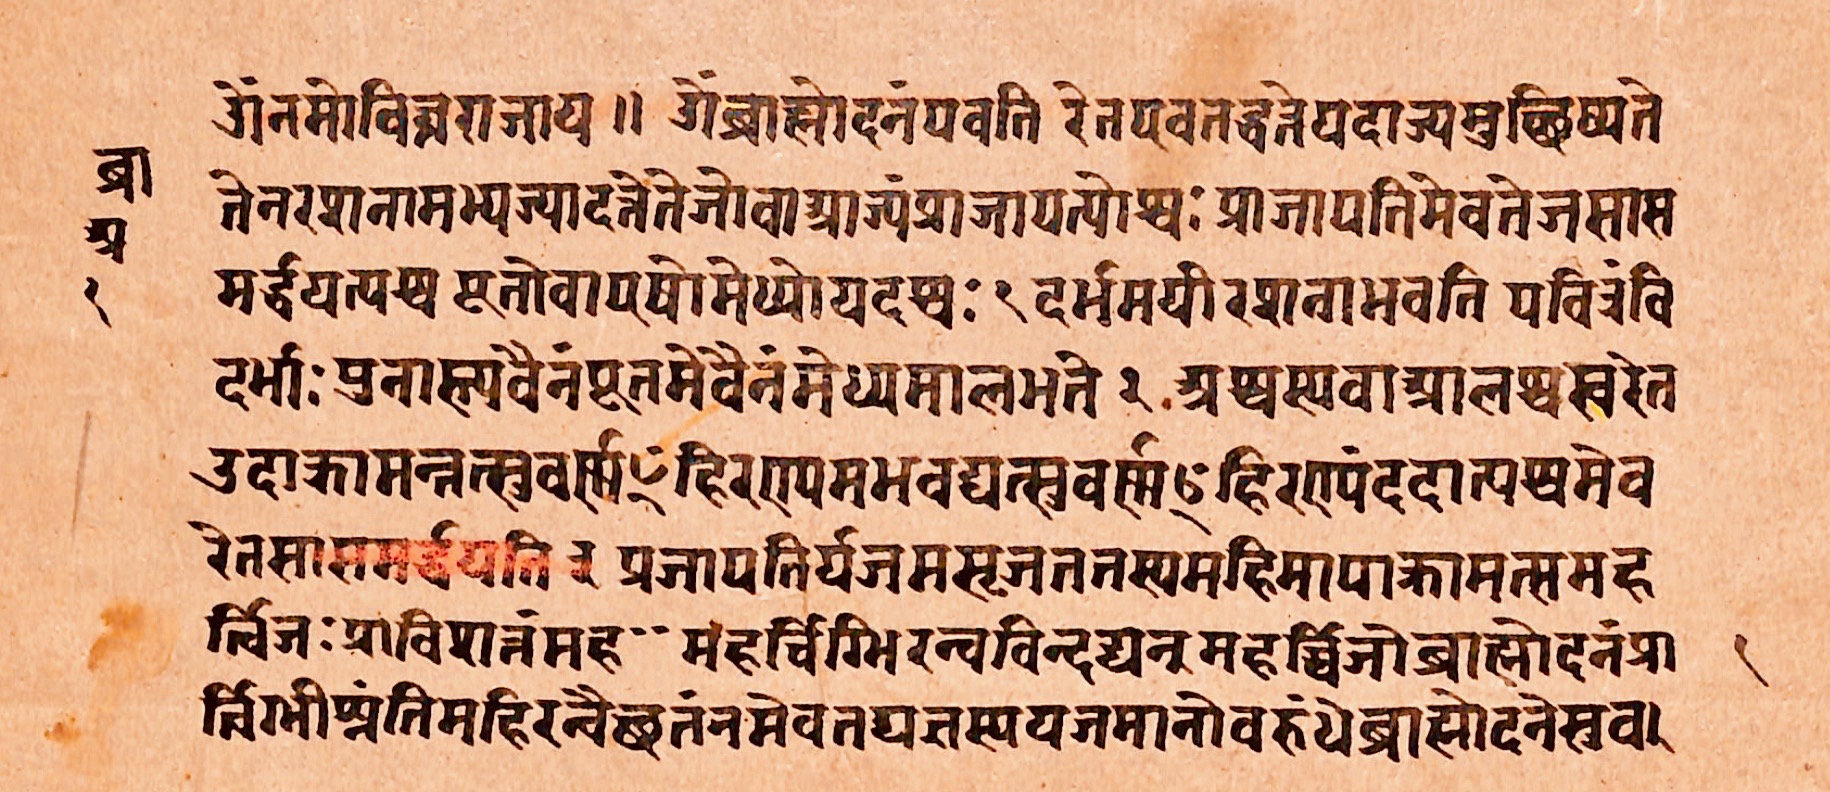 ॐ नमो विघ्नराजाय ॥ ॐ ब्राह्मोदनं पचति रेत एव तद्धत्ते यदाज्यमुच्छिष्यते
तेन रशनामभ्यज्यादत्ते तेजो वा आज्यं प्राजापत्योश्वः प्राजापतिमेव तेजसा स
ब्रा
मर्द्धयत्यश्व पूतो वा एषो मेध्यो यदश्वः १ दर्भमयी रशना भवति पवित्रं वि
अ
१
दर्भाः पुनात्येवैनं पूतमेवैनं मेध्यमालभते २ अश्वस्य वा आलब्धस्य रेत
उदाक्रामत्तत्सुवर्णꣳ हिरण्यमभवद्यत्सुवर्णꣳ हिरण्यं ददात्यश्वमेव
रेतसा समर्द्धयति ३ प्रजापतिर्यज्ञमसृजत तस्य महिमापाक्रामत्स मह
र्त्विजः प्राविशत्तं मह मंहर्त्विग्भिरन्वविन्दद्यन् महर्त्विजो ब्राह्मोदनं प्रा
१